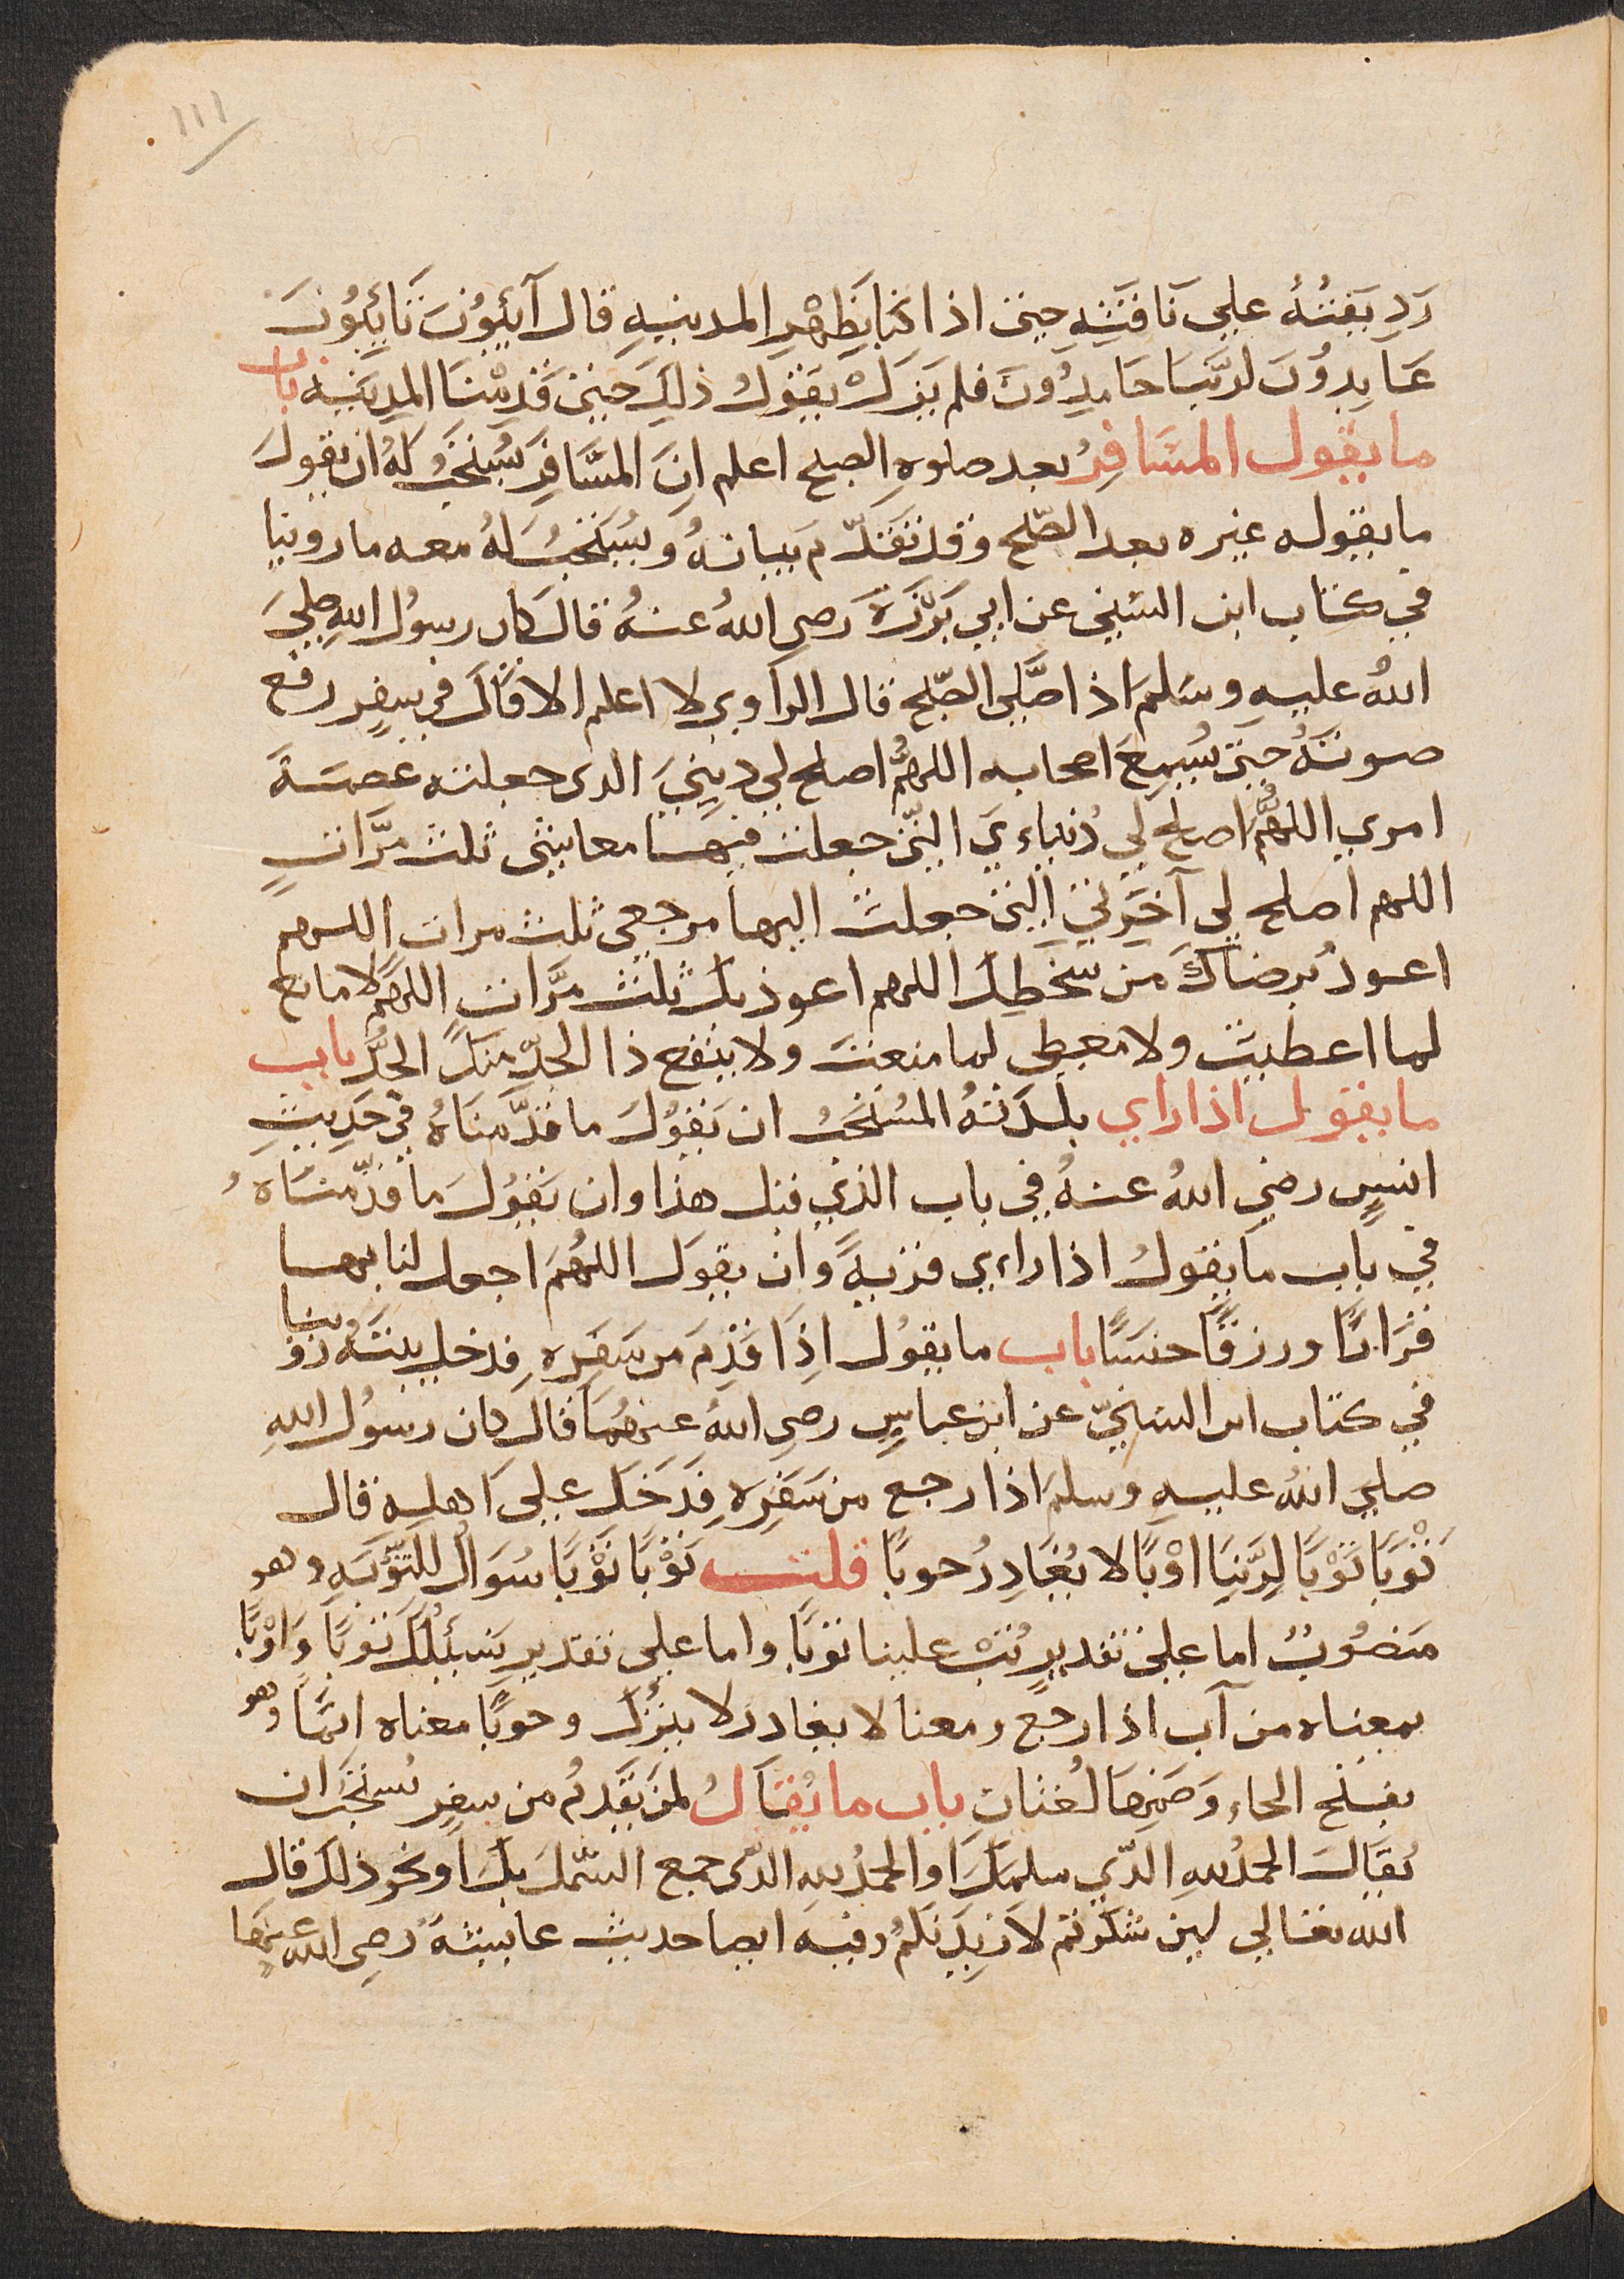 ١١١
رَدِيفَتُهُ علي نَاقتِهِ حتى اذا كنا بِظَهْرِ المدينهِ قال آئبُونَ تَائِبُونَ
عَابِدُونَ لربّنا حَامِدُونَ فلم يَزَلْ يقولُ ذلِكَ حتى قَدِمْنَا المدِينه باب
ما يقول المسَافِرُ بعد صلوةِ الصبح اعلم انَ المسَافِرَ يُستَحَبُّ لهُ ان يقولَ
ما يقوله غيره بعد الصّبح وقد تَقَدّم بيانهُ ويُستحَبُ لهُ معه ما روينا
في كتاب ابن السُني عن ابي بَرْزَةَ رَضي اللهُ عنهُ قال كان رسولُ اللهِ صلي
اللهُ عليهِ وسَلم اذا صَّلى الصّبح قال الراوي لا اعلم الا قال في سفرٍ رفع
صوتَهُ حتى يُسِمعَ اصحابه اللهمُّ اصلح لي دِينيَ الذي جعلته عصمَةَ
امري اللهمُّ اصلح لي دُنياءيَ التّي جعلت فيها معايشى ثلث مرَّاتٍ
اللهم اصلح لي آخَرِتي التي جعلتَ اليها مرجعى ثلث مرات اللهم
اعوذُ برضاكَ من سَخطِكَ اللهم اعوذ بك ثلث مرَّاتٍ اللهُم لا مانع
لما اعطيت ولا معطي لما منعت ولا ينفع ذا الجدّ منكَ الجدُّ باب
ما يقول اذا راي بلدَتهُ المُستَحَبُ ان يَقُولَ ما قدَّمنَاهُ في حَدِيثِ
انسٍ رضي اللهُ عنهُ في باب الذي قبل هذا وان يَقُولَ ما قدّمنَاهُ
في باب ما يقولُ اذا راءي قريةً وان يقولَ اللهُم اجعل لنا بها
قَرَارًا ورزقًا حسَنًا باب ما يقولُ اِذَا قدِمَ من سَفَرِهِ فدخل بيتَهُ روينا
في كتاب ابن السُنيّ عن ابن عباسٍ رضي اللهُ عنهُمَا قال كان رسولُ اللهِ
صلي اللهُ عليهِ وسلم اذا رجع من سَفَرِهِ فَدَخَلَ علي اهلِهِ قال
تَوْبًا تَوْبًا لِرَبِّنَا اوْبًا لا يُغَادِرُ حوبًا قلت تَوْبًا تَوْبًا سُوَالٌ للتّوْبَهِ وهو
مَنصُوبٌ اما علي تقديرِ تُبْ علينا توبًا واما علي تقديرِ نَسئلُكَ توبًا وَاوْبًا
بمعناه من آب اذا رجع ومعنا لا يغادر لا يترُك وحوبًا معناه اثمًا وهو
بفتح الحاءِ وَضمهَا لُغتَان باب ما يُقَالُ لمن يَقدمُ من سفرٍ يُستَحَبُ ان
يُقَالَ الحمدُ للهِ الذّي سلمكَ او الحمدُ لله الذي جمع الشملَ بكَ او نحو ذلك قال
الله تعالي لين شكَرتم لازيدَنكُم وفيه ايضا حديث عايشهَ رضي الله عنهَا